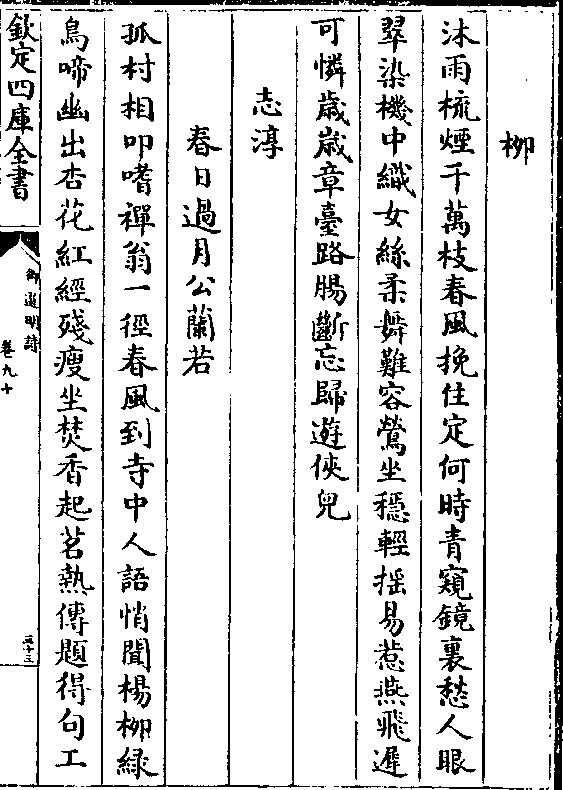 柳
沐雨梳煙千萬枝春風挽住定何時青窺鏡裏愁人眼
翠染機中織女絲柔舞難容鶯坐穩輕揺易惹燕飛遲
可憐歳歳章臺路腸斷忘歸遊俠兒
志淳
春日過月公蘭若
孤村相叩嗜禪翁一徑春風到寺中人語悄聞楊柳綠
鳥啼幽出杏花紅經殘瘦坐焚香起茗熱傳題得句工
欽定四庫全書
御選明詩
卷九十
三十三